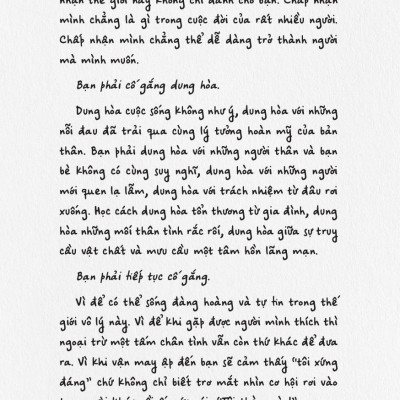 nhận thế giới này không chỉ dành cho bạn. Chấp nhận
mình chẳng là gì trong cuộc đời của rất nhiều người.
Chấp nhận mình chẳng thể dễ dàng trở thành người
mà mình muốn.
Bạn phải cố gắng dung hòa.
Dung hòa cuộc sống không như ý, dung hòa với những
nỗi đau đã trải qua cùng lý tưởng hoàn mỹ của bản
thân. Bạn phải dung hòa với những người thân và bạn
bè không có cùng suy nghĩ, dung hòa với những người
mới quen lạ lẫm, dung hòa với trách nhiệm từ đâu rơi
xuống. Học cách dung hòa tổn thương từ gia đình, dung
hòa những mối thân tình rắc rối, dung hòa giữa sự truy
cầu vật chất và mưu cầu một tâm hồn lãng mạn.
Bạn phải tiếp tục cố gắng.
Vì để có thể sống đàng hoàng và tự tin trong thế
giới vô lý này. Vì để khi gặp được người mình thích thì
ngoại trừ một tấm chân tình vẫn còn thứ khác để đưa
ra. Vì khi vận may ập đến bạn sẽ cảm thấy "tôi xứng
đáng" chứ không chỉ biết trơ mắt nhìn cơ hội rơi vào